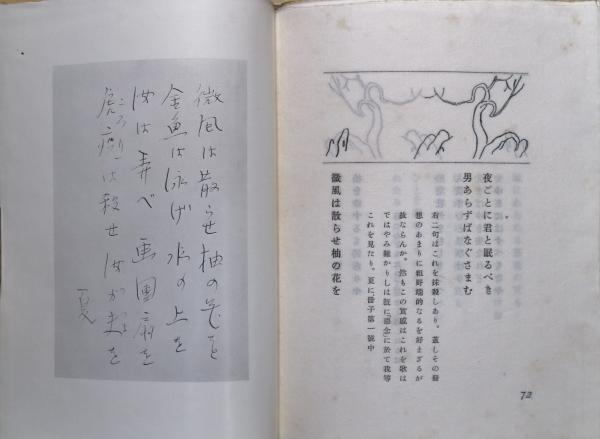 夜ごとに君と眠るべき
男あらずばなぐさまむ
右二句はこれを抹殺しあり。蓋しその發
想のあまりに粗野端的なるを好まざるが
故ならんか。然もこの實感はこれを歌は
ではやみ難かりしは既に「念」に於て我等
これを見たり。夏に(册子第一號中
微風は散らせ柚の花を
72
微風は散らせ柚の花を
金魚は泳げ水の上を
汝は弄べ画團扇を
虎痢は殺せ汝が夫を
ころり
夏